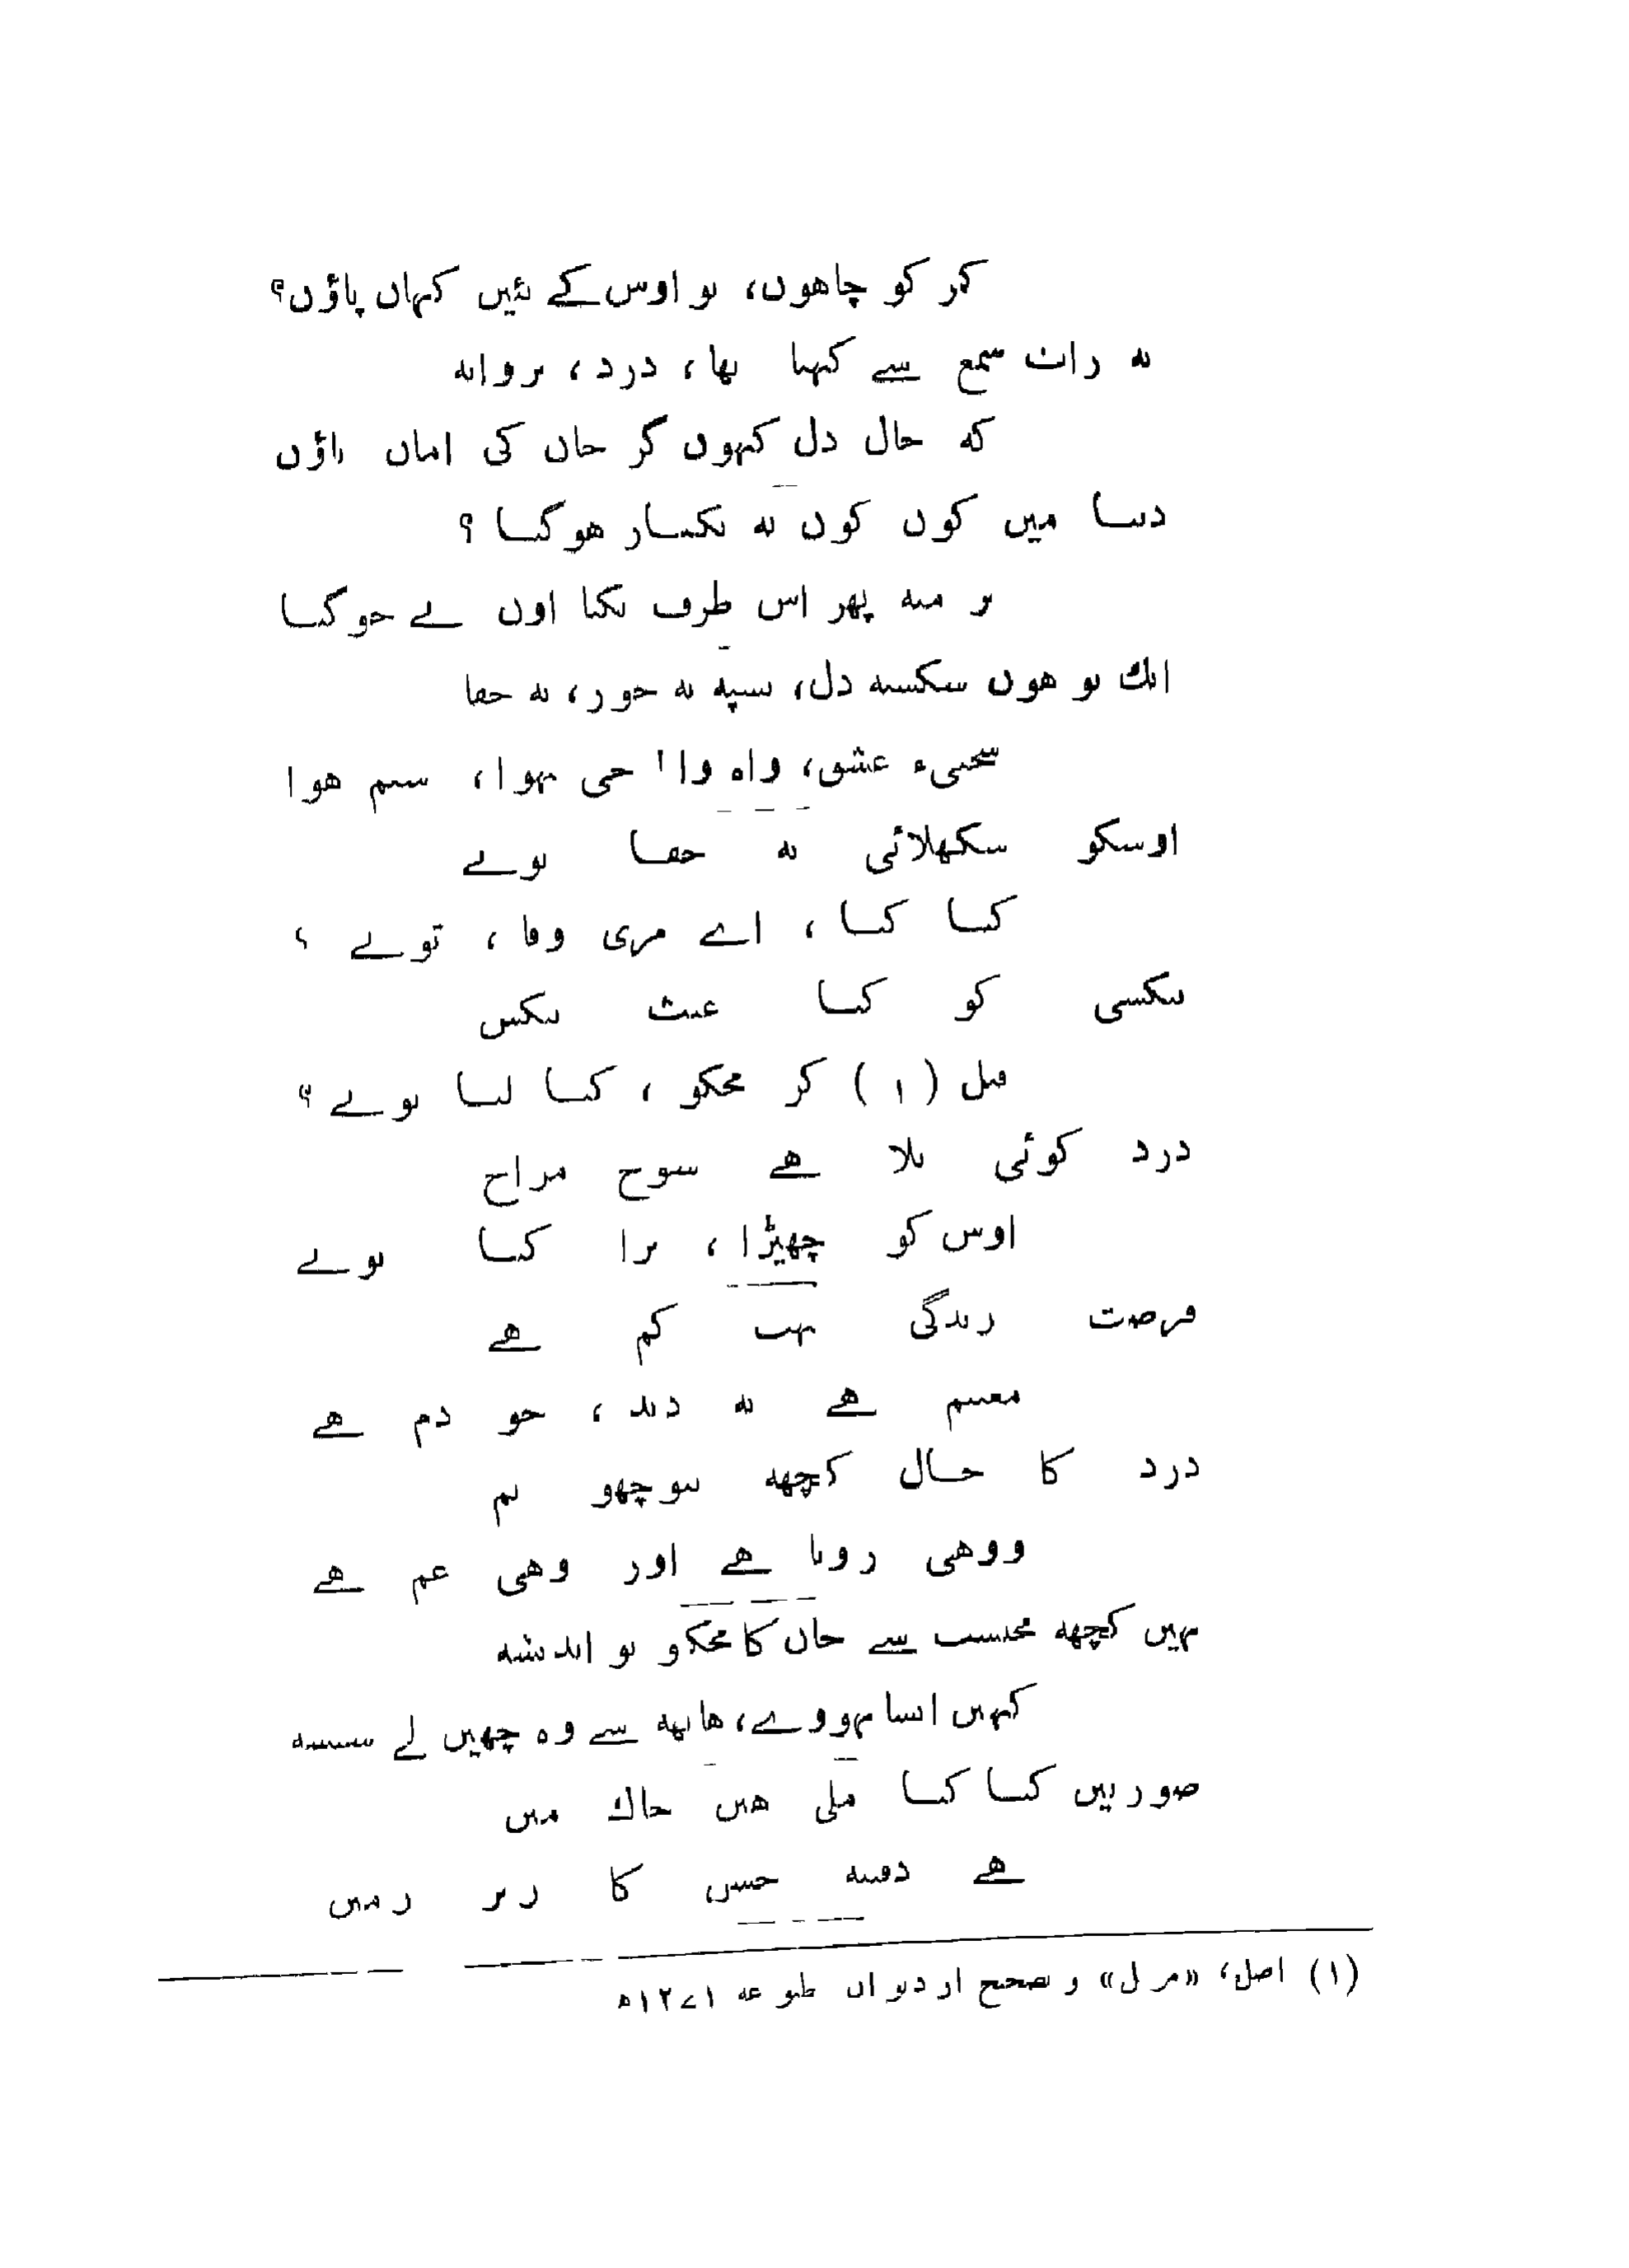 کمر کو چاهوں، تو اوس کے تئیں کہاں پاؤں؟
یه رات شمع سے کہتا تھا، درد، پروانه
که حال دل کہوں گر جان کی اماں پاؤں
دنیا میں کون کون نه یکبار هوگیا ؟
پر منه پھر اس طرف نکیا اون نے جو گیا
ایک تو هوں شکسته دل، تسپه یه جور، یه جفا
سختیء عشق، واه وا! جی نہوا، ستم هوا
اوسکو سکھلائی یه جفا تونے
کیا کیا، اے مری وفا، تونے ؟
بیکسی کو کیا عبث بیکس
قتل (۱) کر مجکو، کیا لیا تونے؟
درد کوئی بلا هے شوخ مزاج
اوس کو چھیڑا، برا کیا تونے
فرصت زندگی بہت کم هے
مغتنم هے یه دید، جو دم هے
درد کا حال کچھه نپوچھو تم
ووهی رونا هے اور وهی غم هے
نہیں کچھه محتسب سے جان کا مجکو تو اندیشه
کہیں ایسا نہووے، هاتھه سے وه چھین لے شیشه
صورتیں کیا کیا ملی هیں خاک میں
هے دفینه حسن کا زیر زمیں
(۱) اصل، «مر ل» و تصحیح از دیوان مطبوعه ۱۲۷۱ه